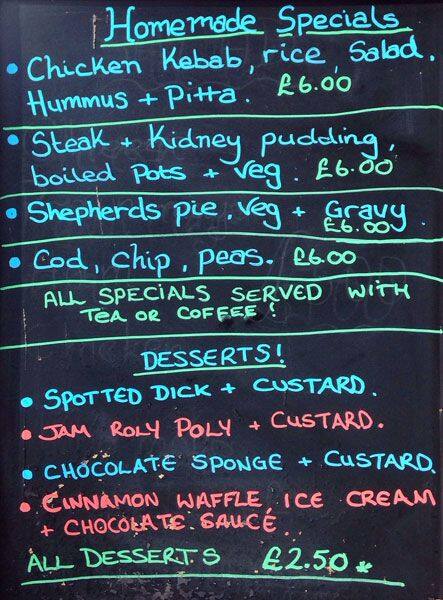 Homemade Specials
• Chicken Kebab, rice, Salad.
Hummus + Pitta. £6.00
• Steak + Kidney pudding,
boiled Pots + Veg. £6.00
• Shepherds pie, veg + Gravy.
£6.00
• Cod, chip, peas. £6.00
ALL SPECIALS SERVED WITH
TEA OR COFFEE!
DESSERTS!
• SPOTTED DICK + CUSTARD.
• JAM ROLY POLY + CUSTARD.
• CHOCOLATE SPONGE + CUSTARD.
• CINNAMON WAFFLE, ICE CREAM
+ CHOCOLATE SAUCE.
ALL DESSERTS £2.50*